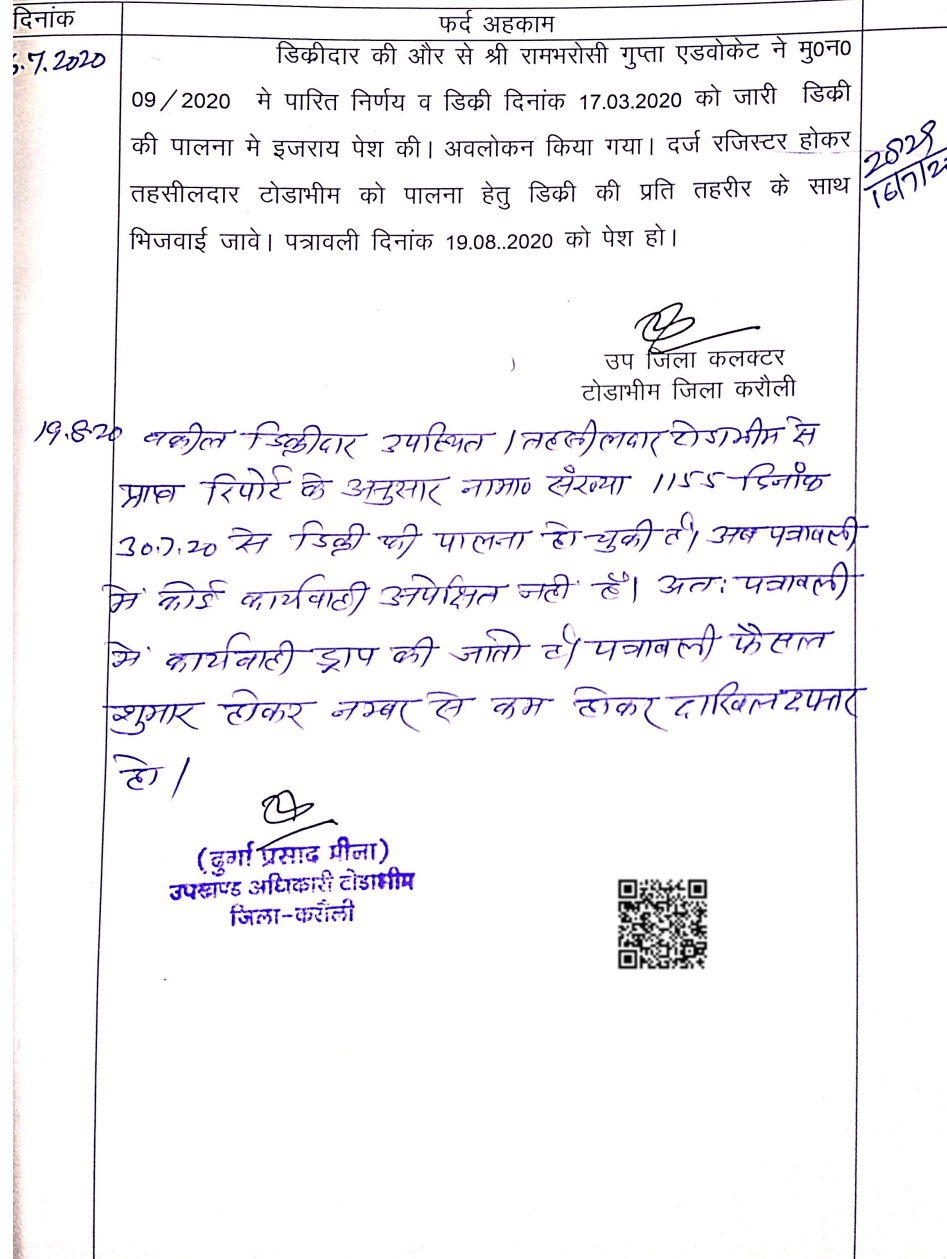 दिनांक
फर्द अहकाम
5.7.2020
डिक्रीदार की और से श्री रामभरोसी गुप्ता एडवोकेट ने मु0न0
09/2020 मे पारित निर्णय व डिक्री दिनांक 17.03.2020 को जारी डिक्री
की पालना मे इजराय पेश की। अवलोकन किया गया। दर्ज रजिस्टर होकर
तहसीलदार टोडाभीम को पालना हेतु डिक्री की प्रति तहरीर के साथ
भिजवाई जावे। पत्रावली दिनांक 19.08..2020 को पेश हो।
2029
16/7/2
उप जिला कलक्टर
टोडाभीम जिला करौली
19.8.20 वकील डिक्रीदार उपस्थित । तहसीलदार टोडाभीम से
प्राप्त रिपोर्ट के अनुसार नामा० संख्या 1155 दिनाँक
30.7.20 से डिक्री की पालना हो चुकी है। अब पत्रावली
में कोई कार्यवाही अपेक्षित नही है। अतः पत्रावली
में कार्यवाही ड्राप की जाती है। पत्रावली फैसल
शुमार होकर नम्बर से कम होकर दाखिल दफ्तर
हो।
(दुर्गा प्रसाद मीना)
उपखण्ड अधिकारी टोडाभीम
जिला-करौली